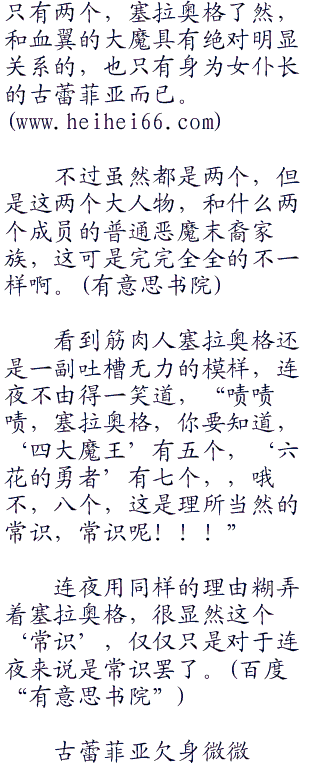 只有两个，塞拉奥格了然，
和血翼的大魔具有绝对明显
关系的，也只有身为女仆长
的古蕾菲亚而已。
(www.heihei66.com)
不过虽然都是两个，但
是这两个大人物，和什么两
个成员的普通恶魔末裔家
族，这可是完完全全的不一
样啊。(有意思书院)
看到筋肉人塞拉奥格还
是一副吐槽无力的模样，连
夜不由得一笑道，“啧啧
啧，塞拉奥格，你要知道，
‘四大魔王’有五个，‘六
花的勇者’有七个，，哦
不，八个，这是理所当然的
常识，常识呢！！！”
连夜用同样的理由糊弄
着塞拉奥格，很显然这个
‘常识’，仅仅只是对于连
夜来说是常识罢了。(百度
“有意思书院”)
古蕾菲亚欠身微微